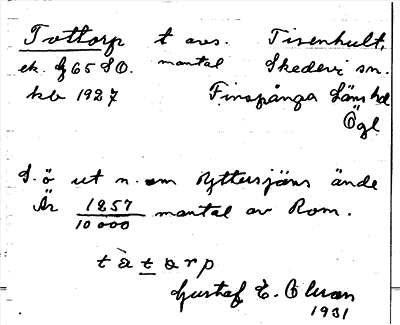 Tottorp t avs. Tisenhult,
ek. bl 65 SO. mantal Skedevi sn.
kb 1927 Finspånga Läns hd
Ögl
S. ö ut n. om Ryttersjöns ände
Är 1257/10000 mantal av Rom.
tàtorp
Gustaf E. Olson
1931